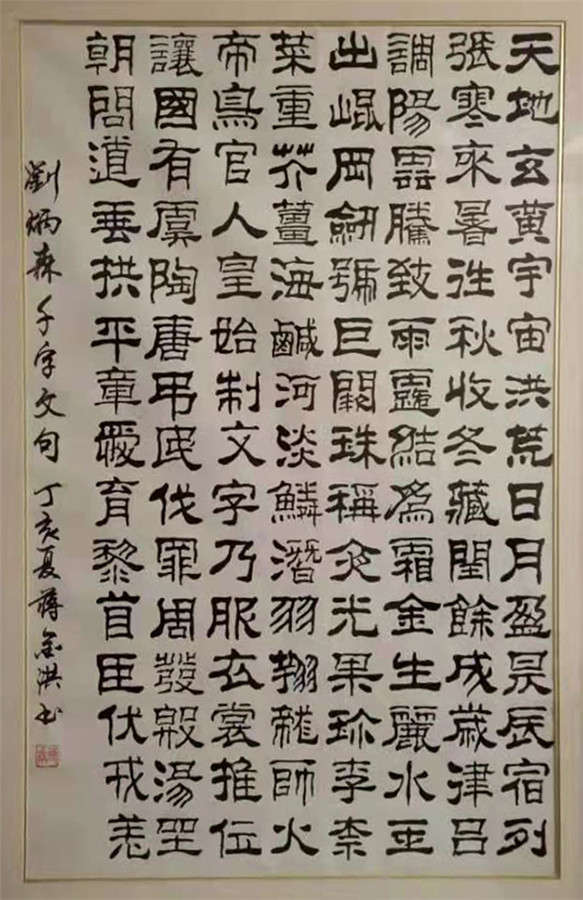 天地玄黃宇宙洪荒日月盈昃辰宿列
張寒來暑往秋收冬藏閏餘成歲律呂
調陽雲騰致雨露結爲霜金生麗水玉
出崐岡劒號巨闕珠稱夜光果珎李柰
菜重芥薑海鹹河淡鱗潛羽翔龍師火
帝鳥官人皇始制文字乃服衣裳推位
讓國有虞陶唐弔民伐罪周發殷湯坐
朝問道垂拱平章愛育黎首臣伏戎羌
劉炳森千字文句 丁亥夏蔣金洪书